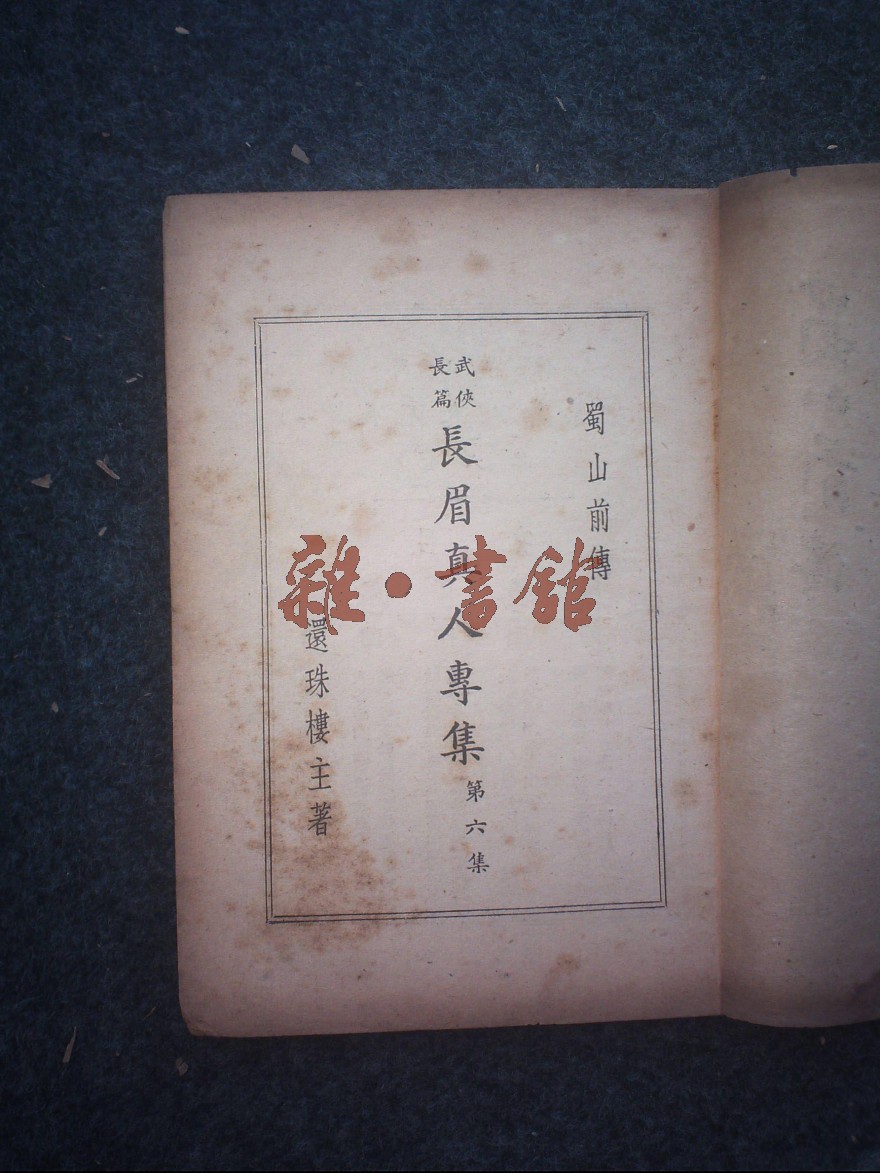 蜀山前傳
武俠
長篇
長眉真人專集
第六集
還珠樓主著
雜·書館